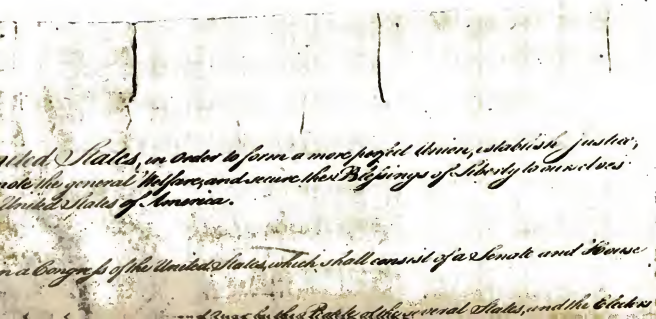 nited States, in Order to form a more perfect Union, establish Justice,
mote the general Welfare, and secure the Blessings of Liberty to ourselves
United States of America.
n a Congress of the United States, which shall consist of a Senate and House
Year by the People of the several States, and the Electors